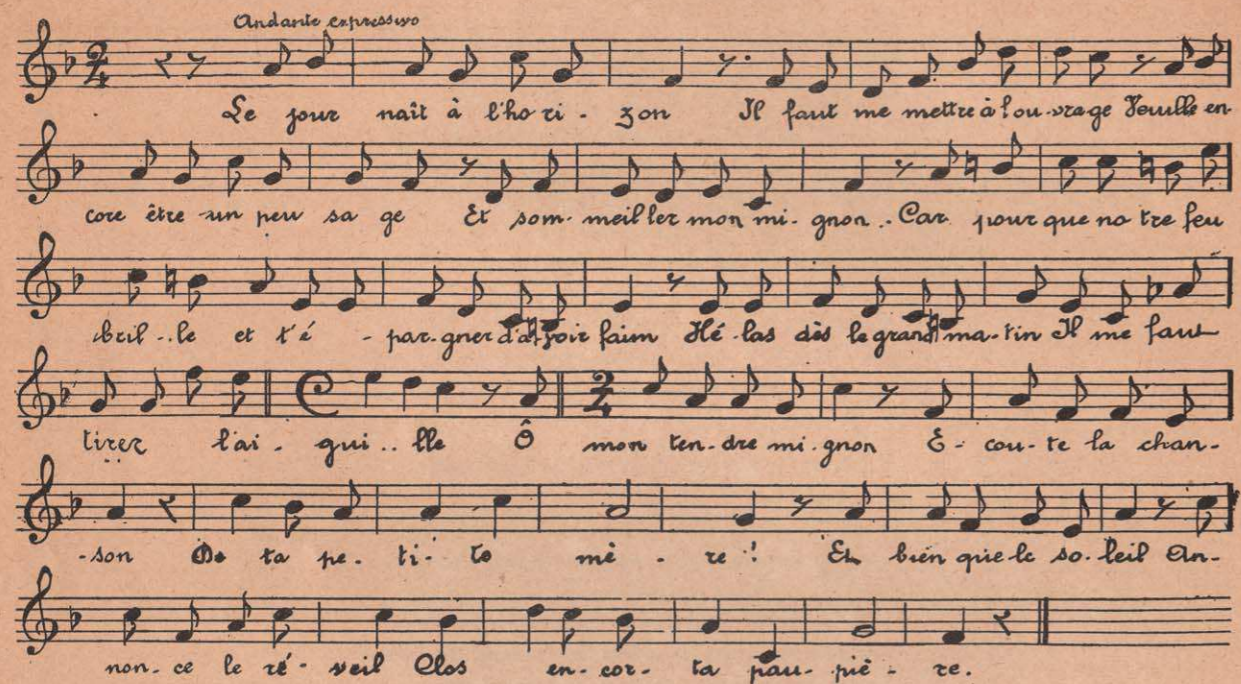 Andante expressivo
Le jour naît à l'ho ri - zon Il faut me mettre à l'ou-vrage Veuille en
core être un peu sa ge Et som-meiller mon mi-gnon.. Car pour que no tre feu
bril--le et t'é - par-gner d'avoir faim Hé-las dès le grand ma-tin Il me faut
tirer l'ai - gui..lle Ô mon ten-dre mi-gnon É-cou-te la chan-
-son De ta pe-ti-te mè-re! Et bien que le so-leil An-
non-ce le ré-veil Clos en-cor- ta pau-piè-re.